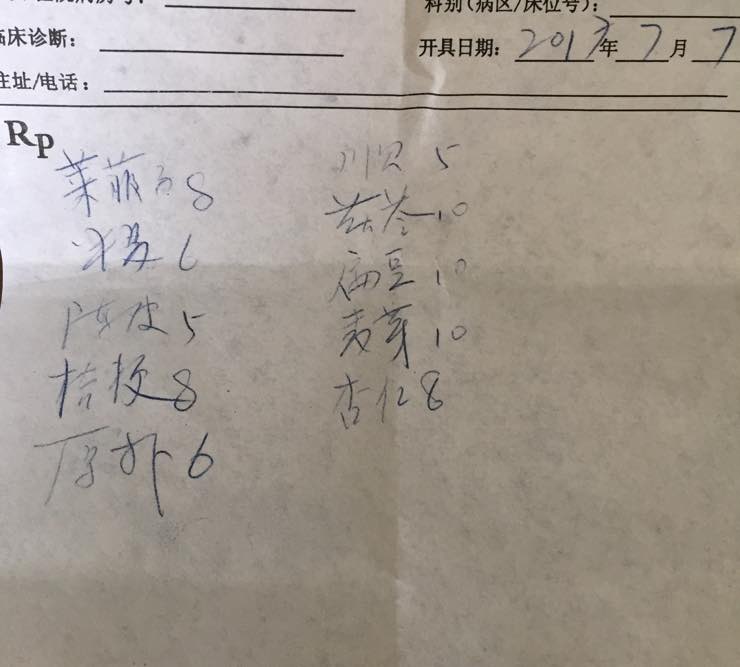 科别(病区/床位号):
临床诊断:
开具日期: 2013年7月7
住址/电话:
Rp
莱菔子8
川贝 5
半夏 6
茯苓10
陈皮 5
扁豆 10
桔梗8
麦芽10
厚朴 6
杏仁8